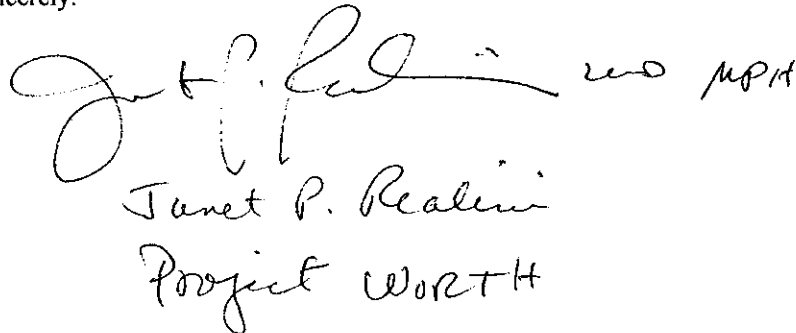 Sincerely.
Janet P. Realini MD MPH
Janet P. Realini
Project WORTH